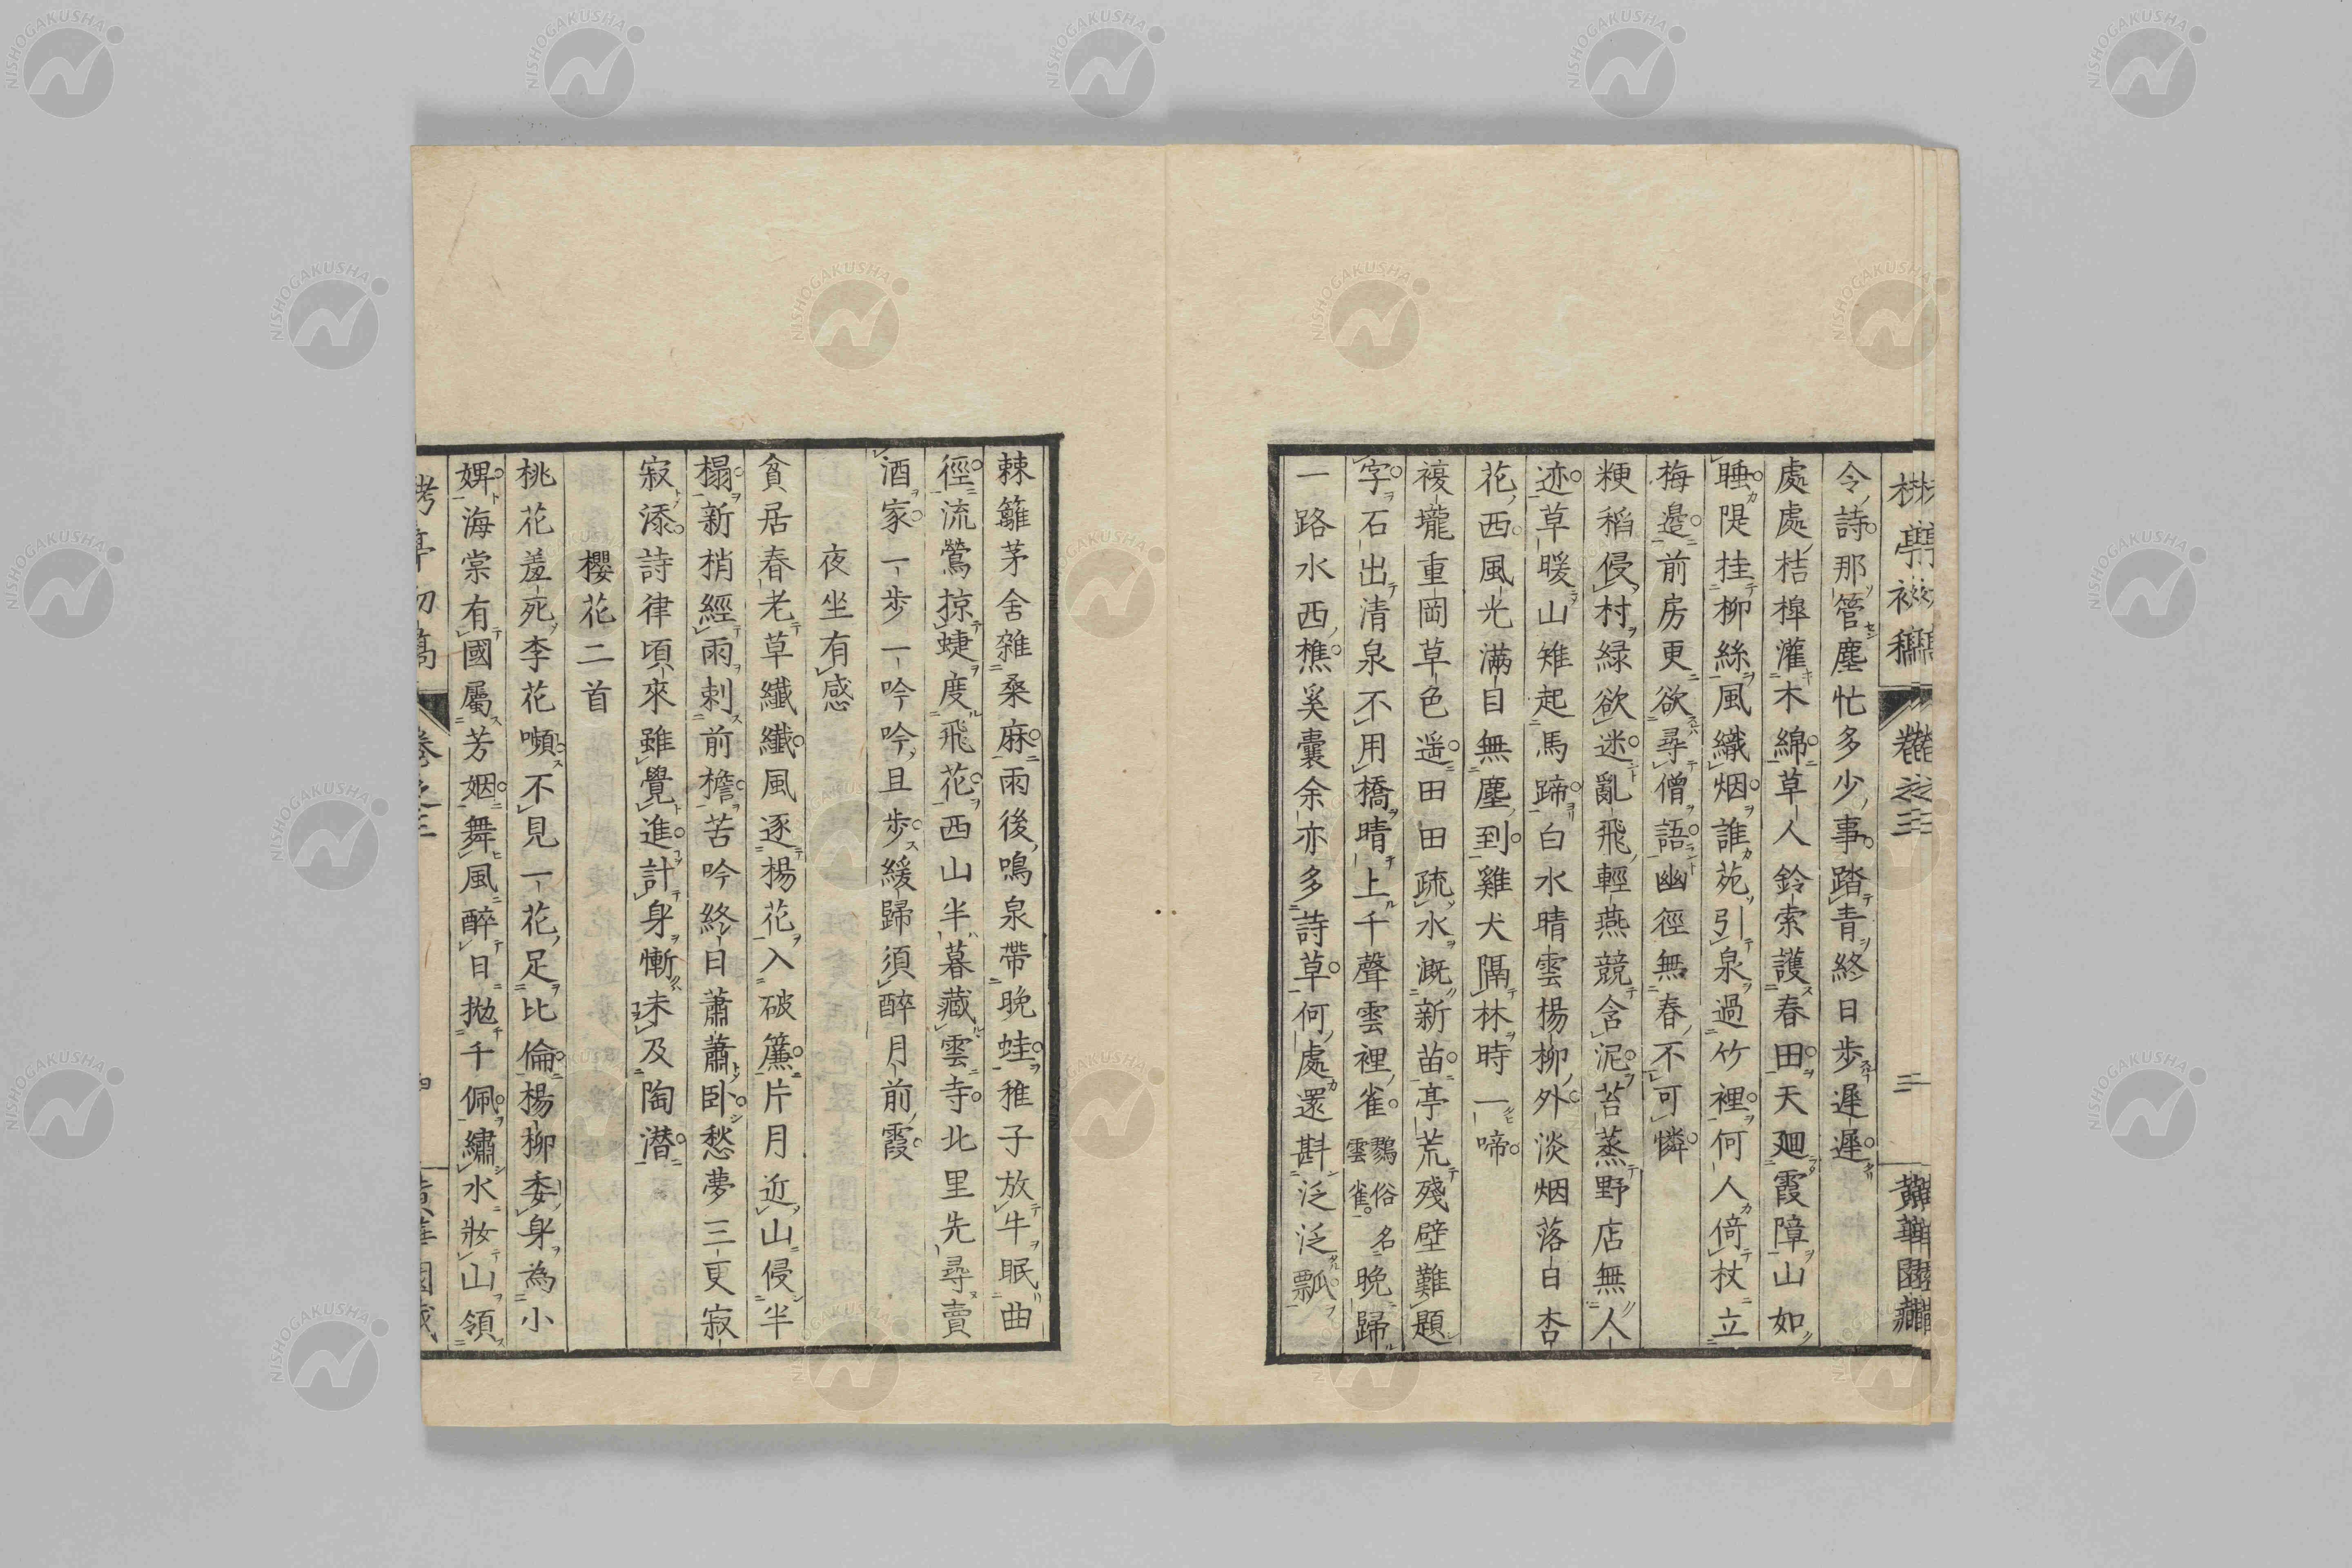 令詩那管塵忙多少事踏青終日步遲遲
處處桔槹灌木綿草人鈴索護春田天廻霞障山如
睡隄挂柳絲風織烟誰苑引泉過竹裡何人倚杖立
梅邊前房更欲尋僧語幽徑無春不可憐
粳稻侵村緑欲迷亂飛輕燕競含泥苔蒸野店無人
迹草暖山雉起馬蹄白水晴雲楊柳外淡烟落日杏
花西風光滿目無塵到雞犬隔林時一啼
複壠重岡草色遥田田疏水溉新苗亭荒殘壁難題
字石出清泉不用橋晴上千聲雲裡雀鷚俗名雲雀晚歸
一路水西樵奚囊余亦多詩草何處還斟泛泛瓢
棘籬茅舍雜桑麻雨後鳴泉帶晚蛙稚子放牛眠曲
徑流鶯掠蜨度飛花西山半暮藏雲寺北里先尋賣
酒家一步一吟吟且步緩歸須醉月前霞
夜坐有感
貧居春老草纖纖風逐楊花入破簾片月近山侵半
榻新梢經雨刺前檐苦吟終日蕭蕭臥愁夢三更寂
寂添詩律頃來雖覺進計身慚未及陶潜
櫻花二首
桃花羞死李花嚬不見一花足比倫楊柳委身為小
婢海棠有國屬芳姻舞風醉日拋千佩繡水妝山領
卷之三
三
黄華園藏